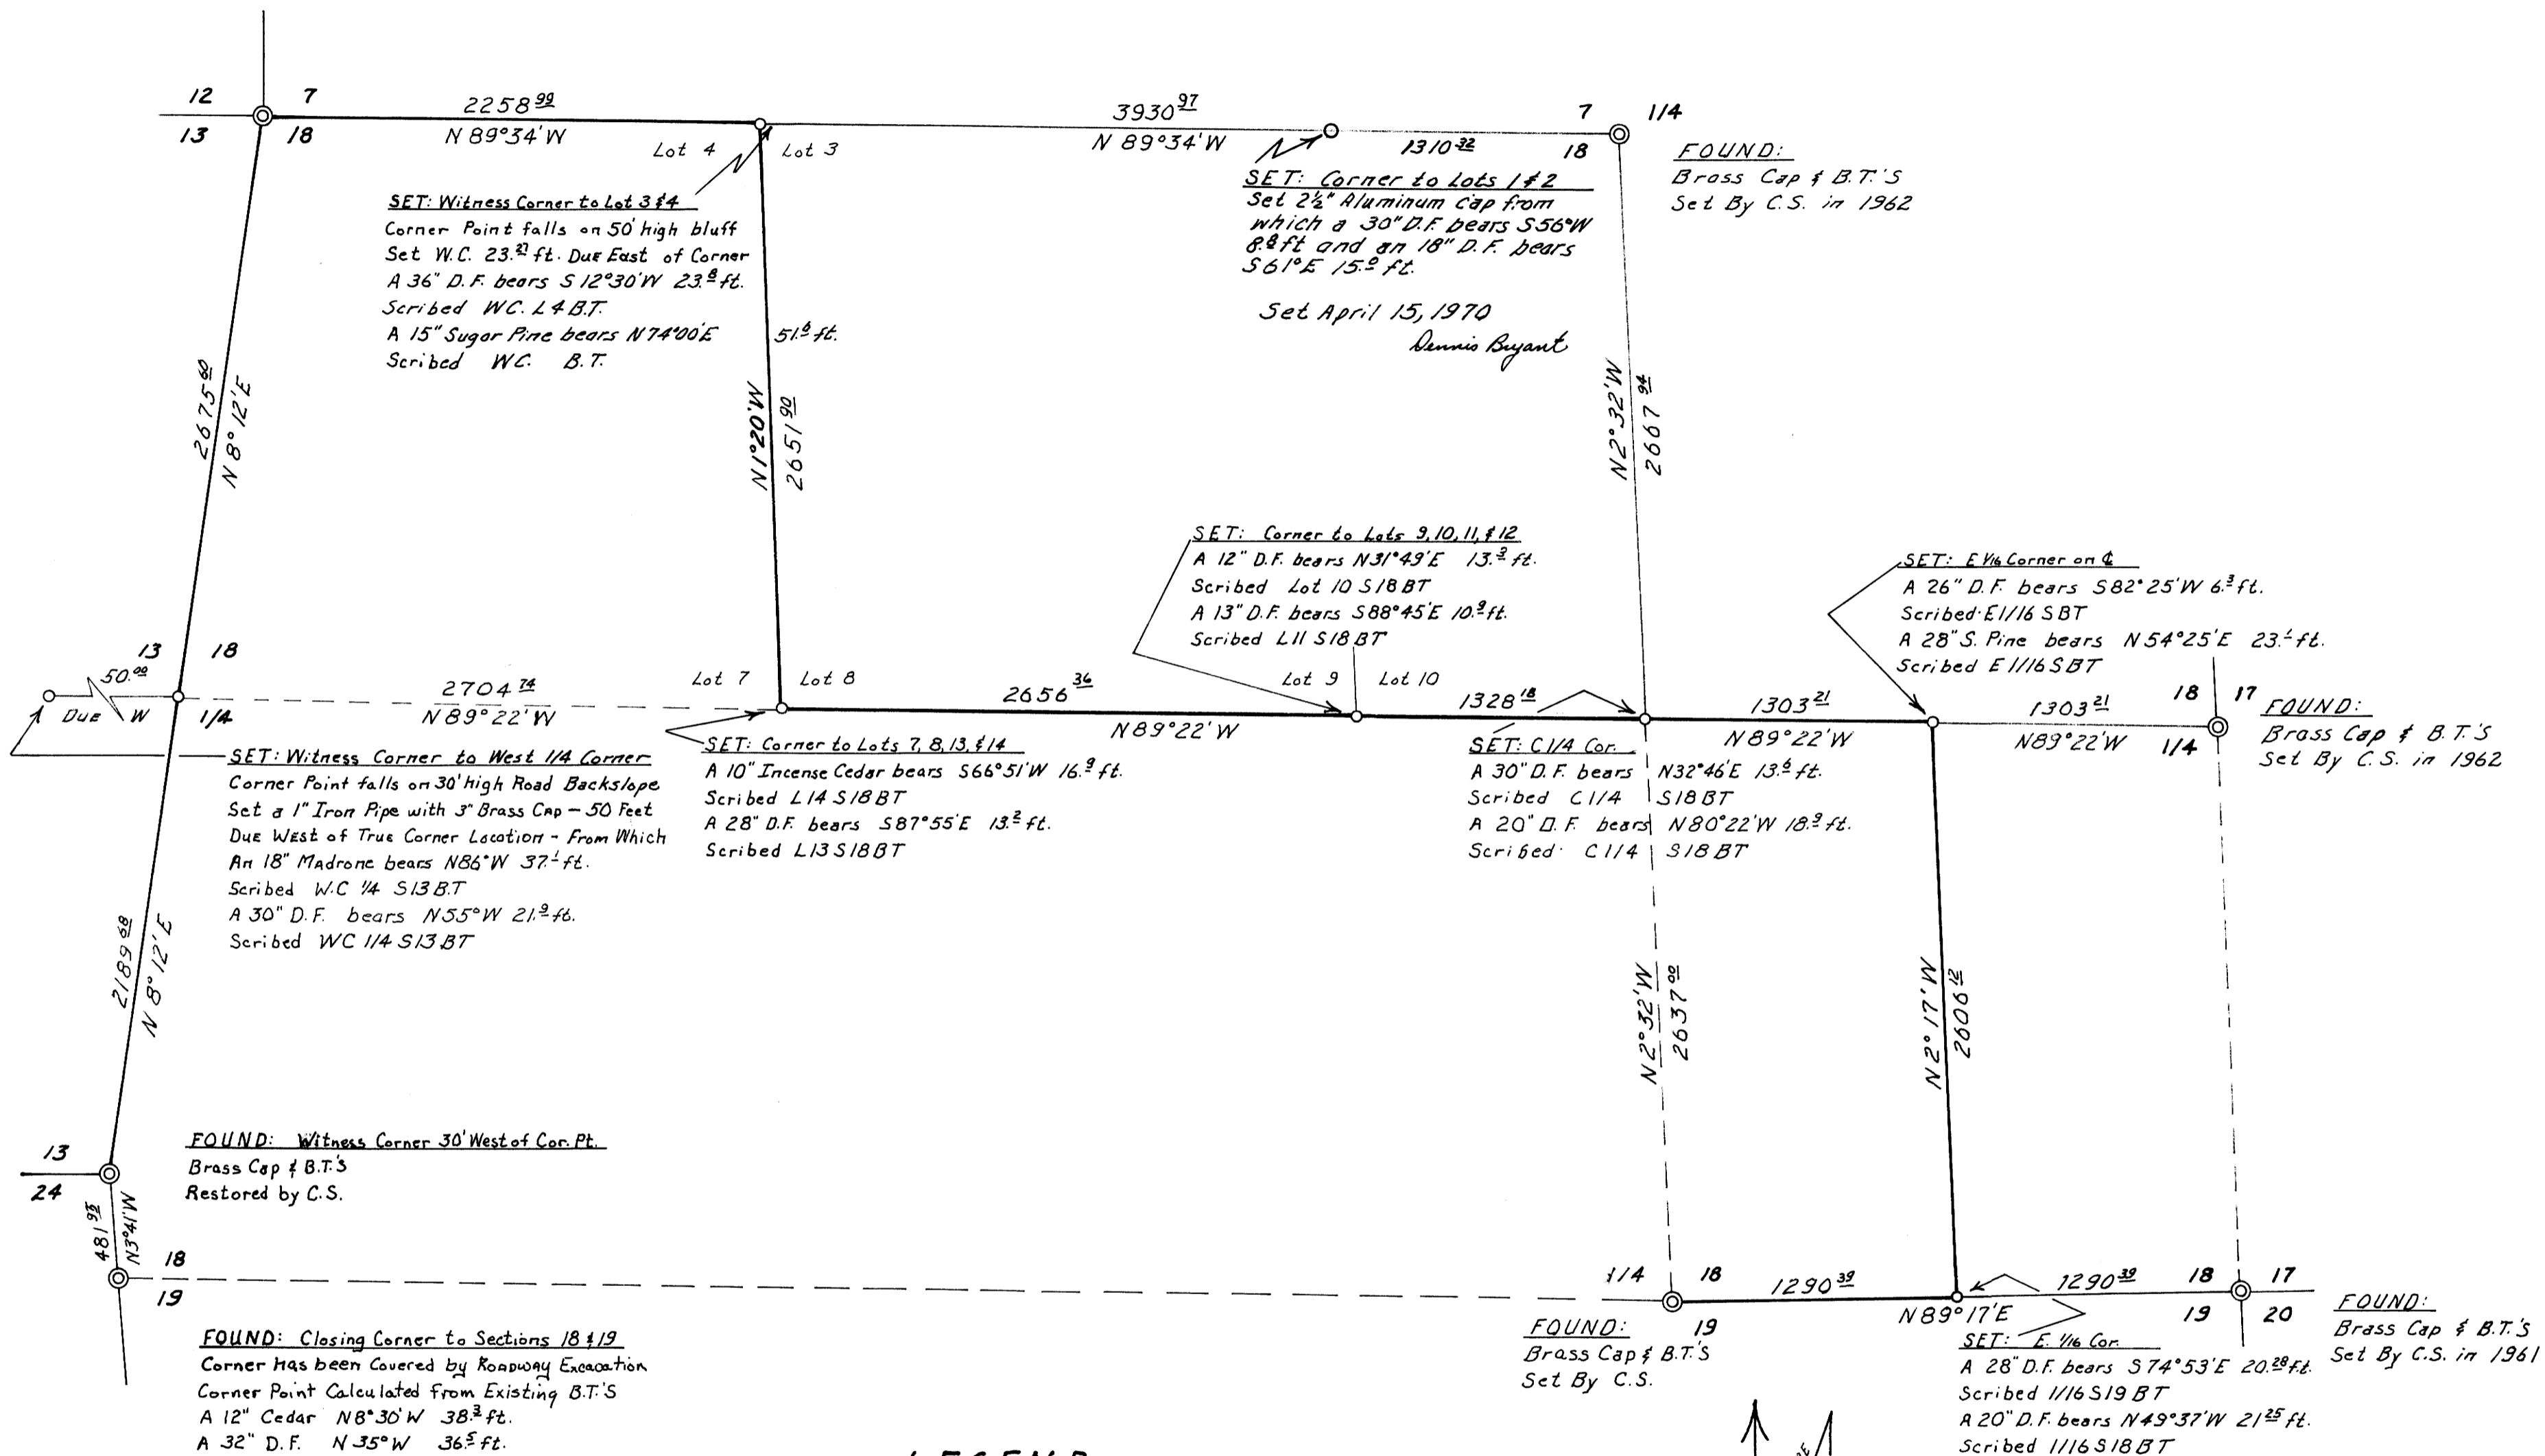 12 7
13 18
2258 99
N 89°34'W
Lot 4 Lot 3
3930 97
N 89°34'W
1310 32
7 1/4
18
FOUND:
Brass Cap & B.T.'S
Set By C.S. in 1962
SET: Witness Corner to Lot 3 & 4
Corner Point falls on 50' high bluff
Set W.C. 23.27 ft. Due East of Corner
A 36" D.F. bears S 12°30'W 23.8 ft.
Scribed WC. L4 B.T.
A 15" Sugar Pine bears N74°00'E 51.6 ft.
Scribed WC. B.T.
SET: Corner to Lots 1 & 2
Set 2½" Aluminum Cap from
which a 30" D.F. bears S56°W
8.8 ft and an 18" D.F. bears
S61°E 15.0 ft.
Set April 15, 1970
Dennis Bryant
2675 60
N 8° 12' E
N1°20'W
2651 90
N2°32'W
2667 94
SET: Corner to Lots 9, 10, 11, & 12
A 12" D.F. bears N31°49'E 13.3 ft.
Scribed Lot 10 S18 BT
A 13" D.F. bears S88°45'E 10.9 ft.
Scribed L11 S18 BT
SET: E 1/16 Corner on ℄
A 26" D.F. bears S82°25'W 6.3 ft.
Scribed E1/16 S BT
A 28" S. Pine bears N54°25'E 23.1 ft.
Scribed E 1/16 S BT
13 18
50.00
Due W
1/4
2704 74
N89°22'W
Lot 7 Lot 8
2656 36
N89°22'W
Lot 9 Lot 10
1328 18
1303 21
N89°22'W
1303 21
N89°22'W
18 17
1/4
FOUND:
Brass Cap & B.T.'S
Set By C.S. in 1962
SET: Witness Corner to West 1/4 Corner
Corner Point falls on 30' high Road Backslope
Set a 1" Iron Pipe with 3" Brass Cap - 50 Feet
Due West of True Corner Location - From Which
An 18" Madrone bears N86°W 37.1 ft.
Scribed W.C 1/4 S13 B.T
A 30" D.F. bears N55°W 21.9 ft.
Scribed WC 1/4 S13 BT
SET: Corner to Lots 7, 8, 13, & 14
A 10" Incense Cedar bears S66°51'W 16.9 ft.
Scribed L14 S18 BT
A 28" D.F. bears S87°55'E 13.2 ft.
Scribed L13 S18 BT
SET: C 1/4 Cor.
A 30" D.F. bears N32°46'E 13.6 ft.
Scribed C 1/4 S18 BT
A 20" D.F. bears N80°22'W 18.9 ft.
Scribed C 1/4 S18 BT
2189 68
N 8° 12' E
N2°32'W
2637 00
N2° 17' W
2606 12
13
24
FOUND: Witness Corner 30' West of Cor. Pt.
Brass Cap & B.T.'S
Restored by C.S.
N3°41'W
18
19
FOUND: Closing Corner to Sections 18 & 19
Corner has been Covered by Roadway Excacation
Corner Point Calculated from Existing B.T.'S
A 12" Cedar N8°30'W 38.3 ft.
A 32" D.F. N 35°W 36.5 ft.
1/4 18
19
FOUND:
Brass Cap & B.T.'S
Set By C.S.
1290 39
N89°17'E
1290 39
18 17
19 20
FOUND:
Brass Cap & B.T.'S
Set By C.S. in 1961
SET: E. 1/16 Cor.
A 28" D.F. bears S74°53'E 20.28 ft.
Scribed 1/16 S19 BT
A 20" D.F. bears N49°37'W 21.25 ft.
Scribed 1/16 S18 BT